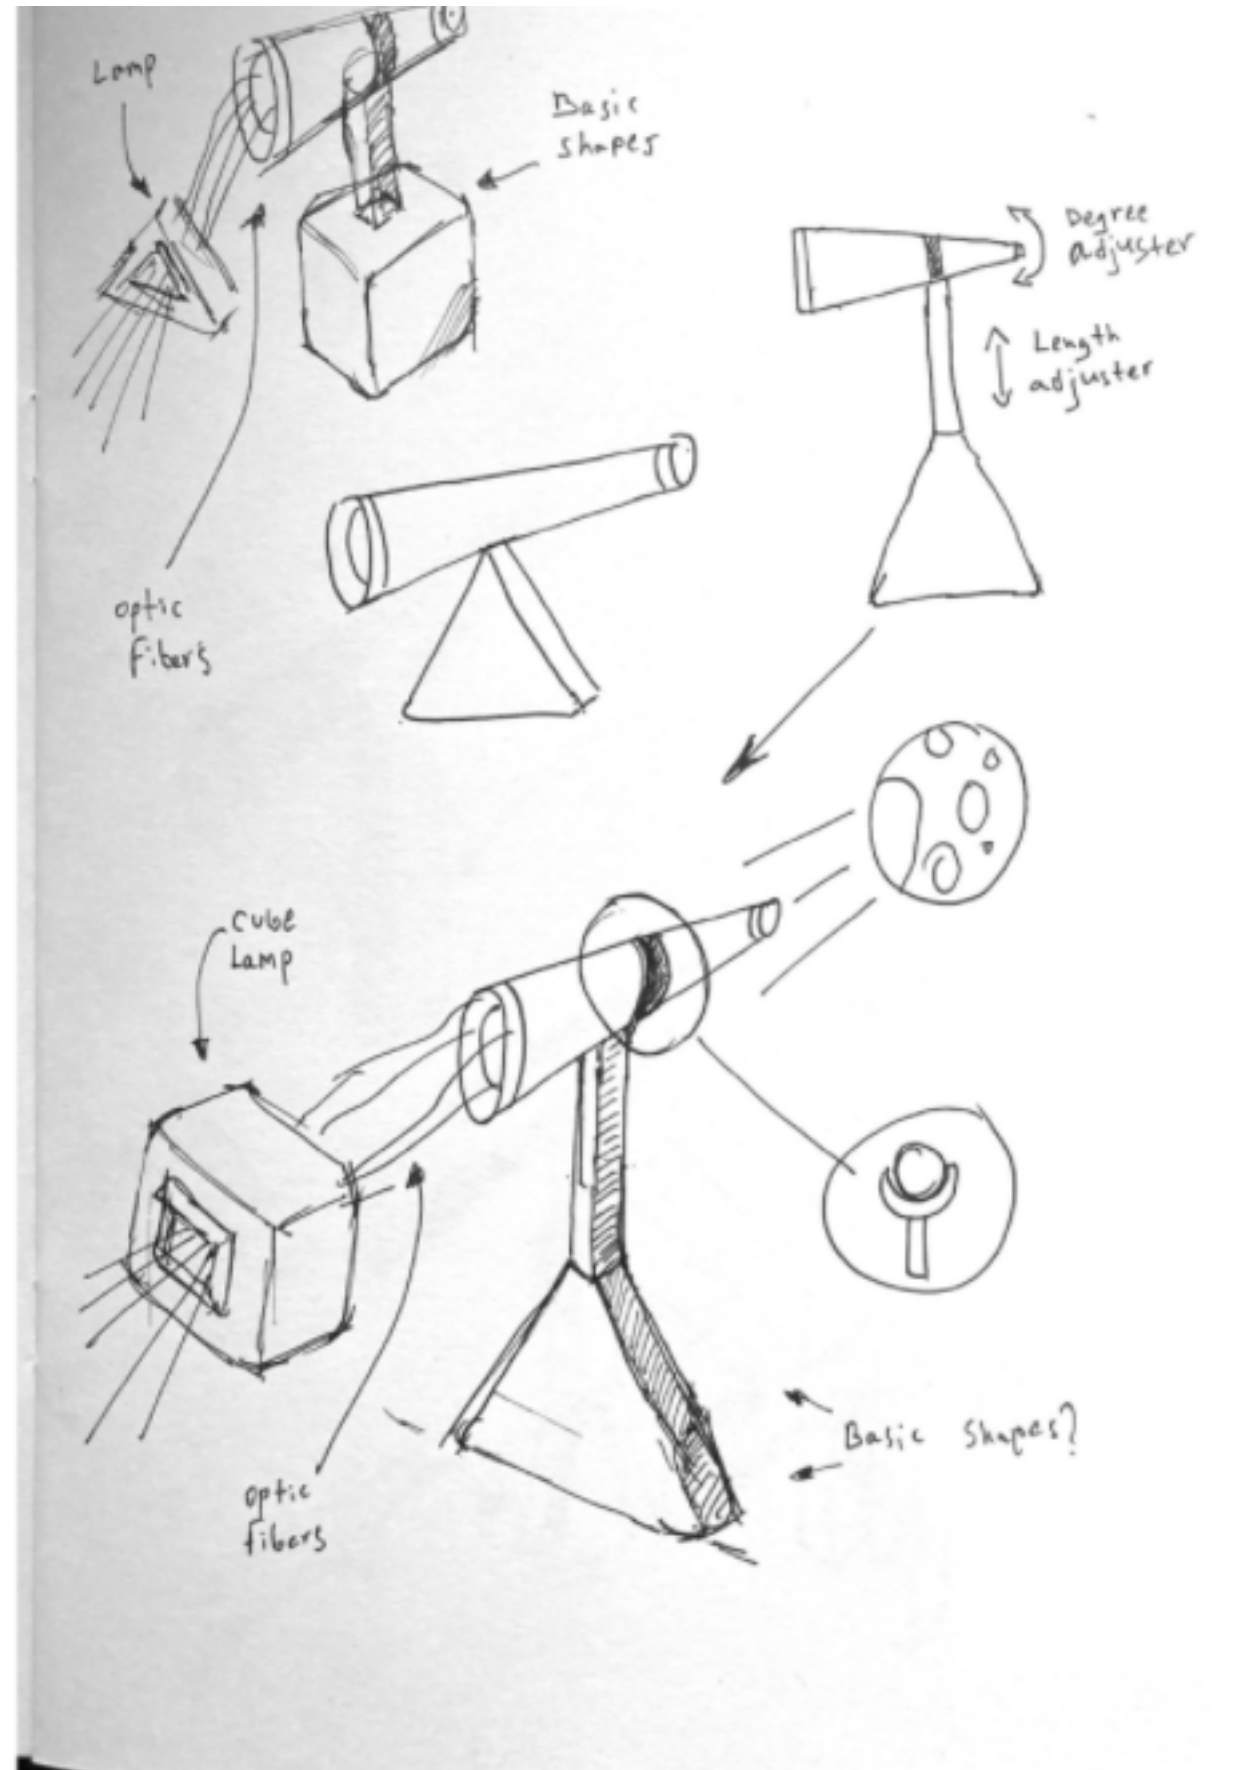 Lamp
Basic
shapes
Degree
adjuster
Length
adjuster
optic
fibers
cube
Lamp
Basic shapes?
optic
fibers